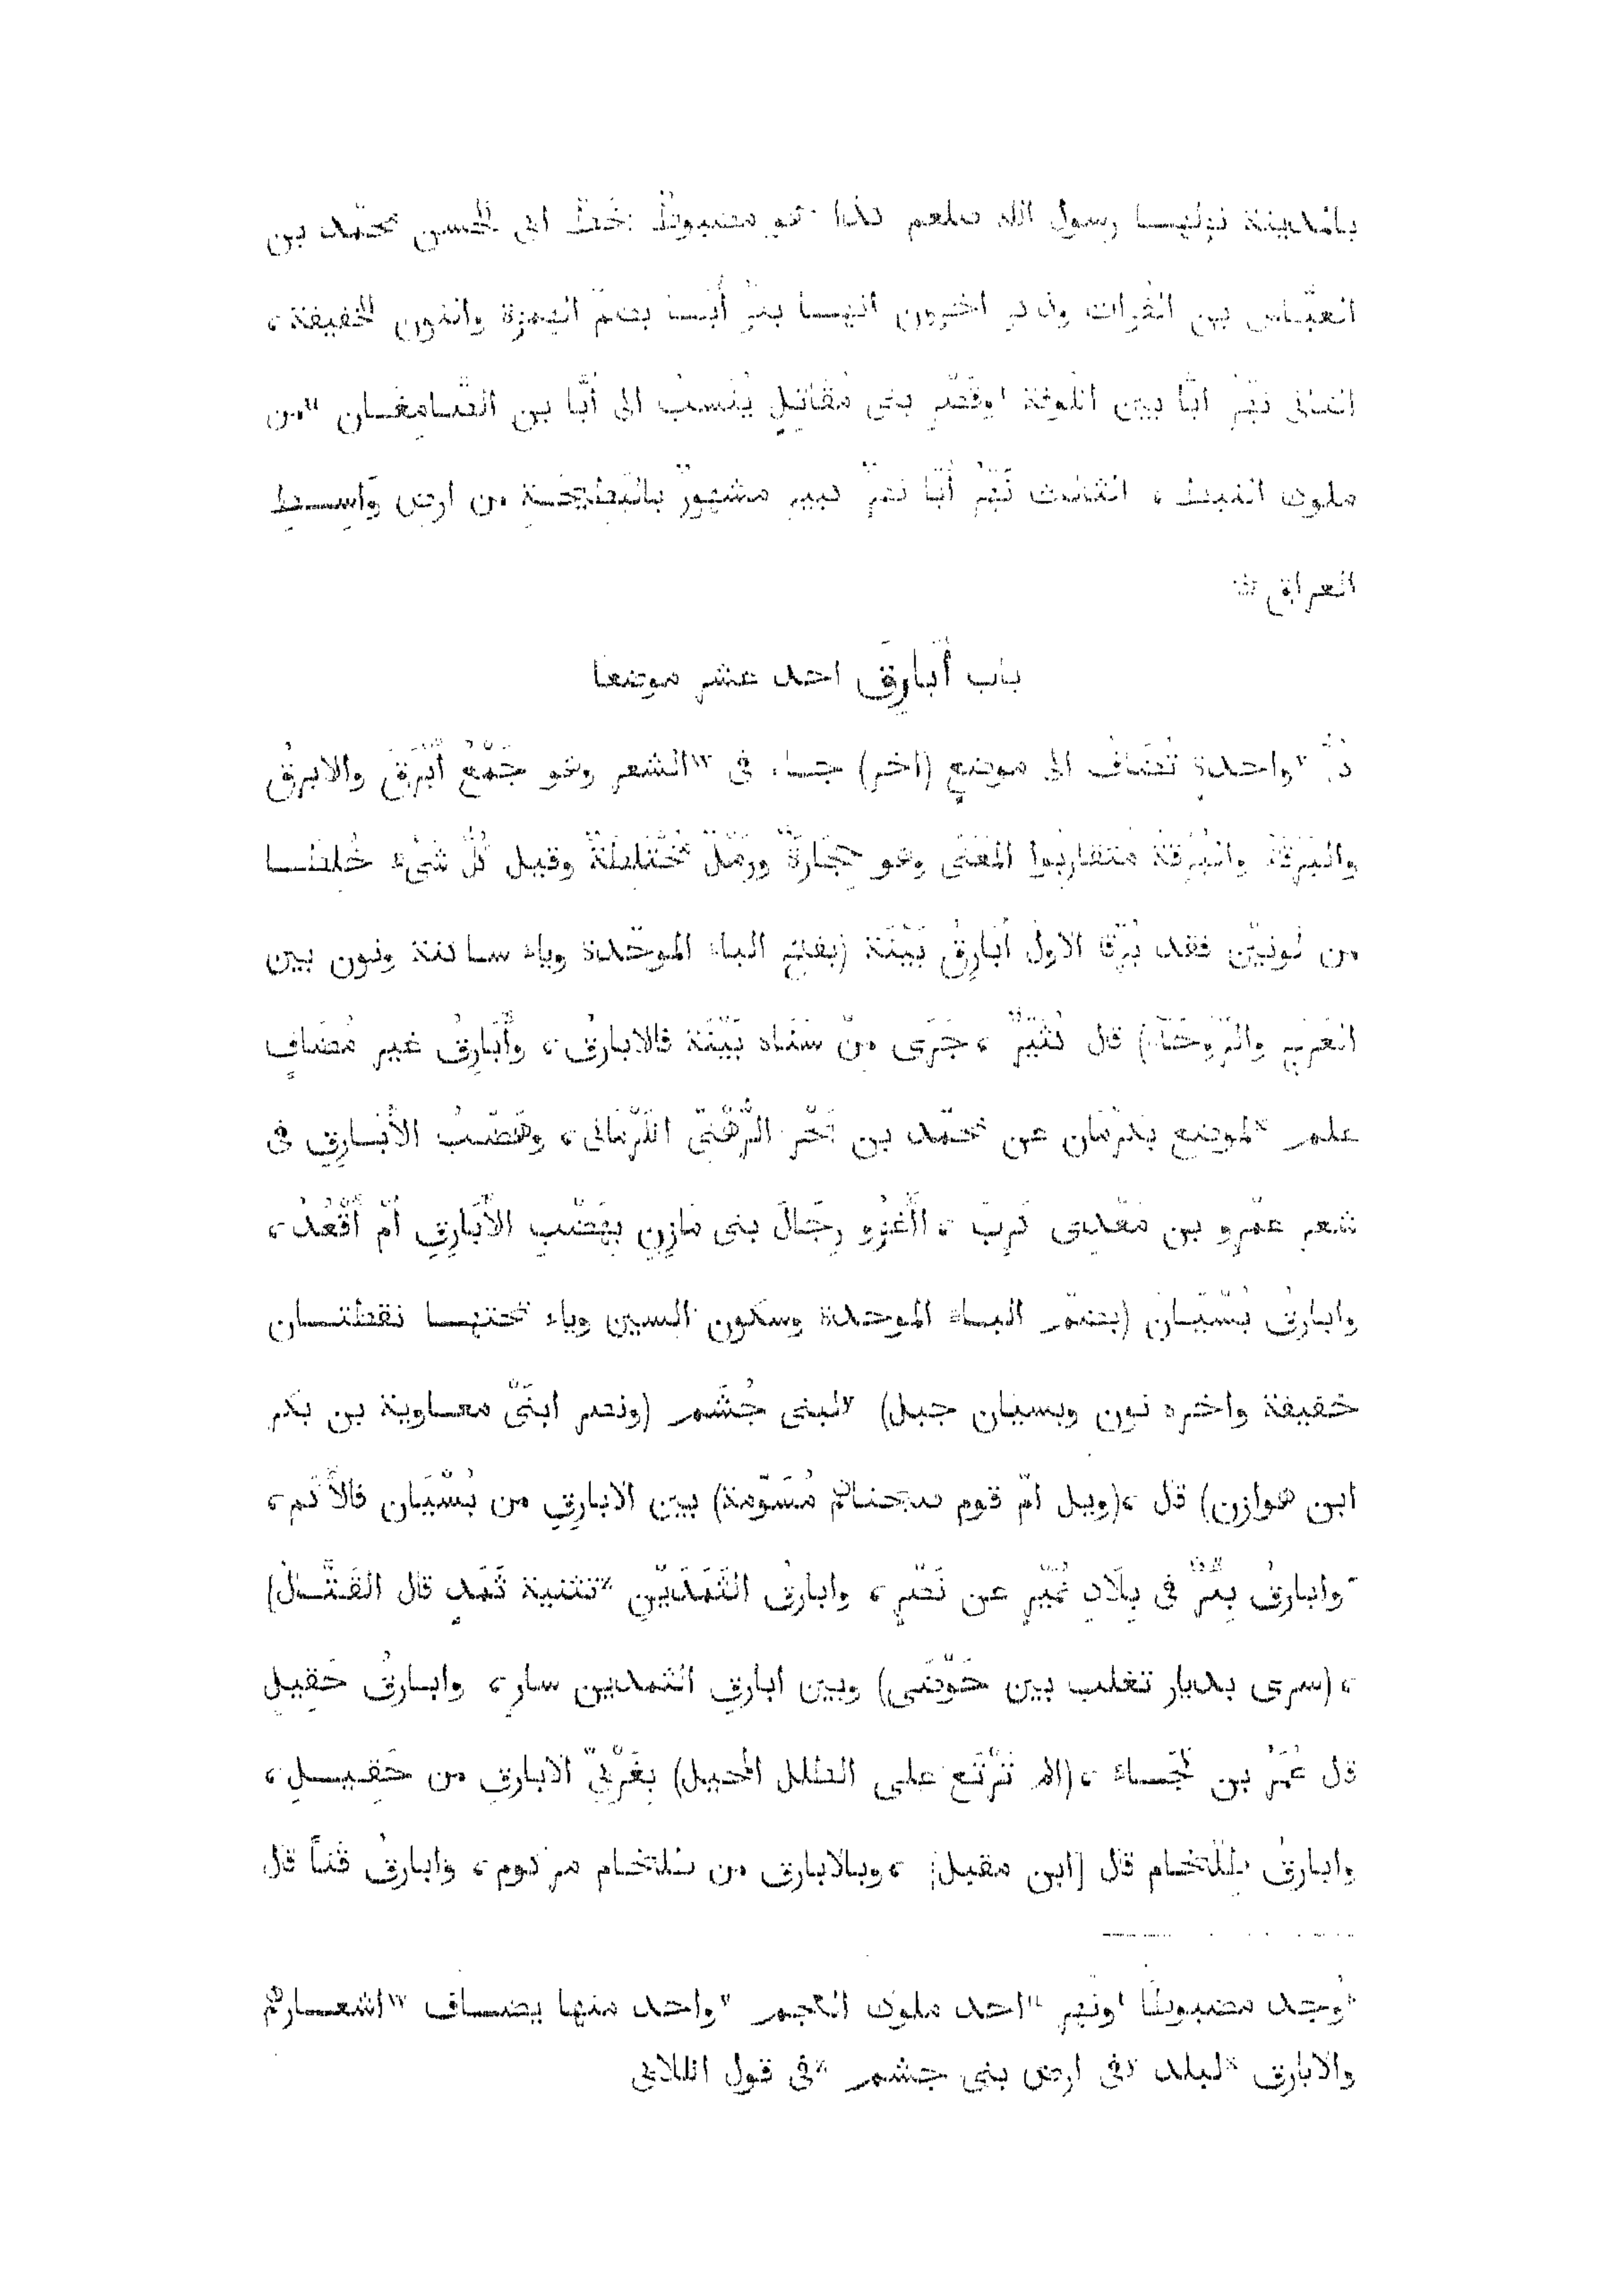 بالمدينة نزلهـا رسول الله صلعم كذا هو مضبوطٌ بخَطّ ابى الحسن محمّد بن
العبّاس بن الفُرات وذكر اخرون انهـا بئر أُنَـا بضمّ الهمزة والنون الخفيفة ،
الثانى نَهْرُ أَبَّا بين الكوفة وقَصْرِ بنى مُقَاتِلٍ يُنْسَبُ الى أَبَّا بن الصَّامِغَـان من
ملوك النبط ، الثالث نَهْرُ أَبَّا نَهْرٌ كبير مشهورٌ بالبَطِيحَـةِ من ارض وَاسِـــطِ
العراق ۞
باب أَبَارِق احد عشر موضعا
كلُّ واحدةٍ تُضَافُ الى موضعٍ (اخر) جـاء فى الشعر وهو جَمْعُ أَبْرَقَ والابرقُ
والبَرْقَة والبُرْقَة متقاربُوا المَعْنَى وهو حِجَارَةٌ ورَمْلٌ مُخْتَلِطَةٌ وقيل كُلُّ شَىْء خُلِطَـا
من لَونَيْن فقد بُرِّقَا الاول أَبَارِقُ بَيْنَةَ (بفتح الباء الموحّدة وياء ساكنة ونون بين
العَرْج والرَّوحَآء) قال كُثَيِّرٌ ، جَرَى مِنْ سَنَاه بَيْنَة فالابارق ، وأَبَارِقُ غير مُضَافٍ
علم لموضع بكَرْمَان عن محمّد بن بَحْر الرُّهْنِىّ الكَرْمَانى ، وهَضْبُ الأَبَـارِقِ فى
شعر عَمْرو بن مَعْدِى كَرِبَ ، أَأَغْزُو رِجَالَ بنى مَازِنٍ بِهَضْبِ الأَبَارِقِ أَمْ أَقْعُدُ ،
وابارقُ بُسْيَـان (بضمّ البـاء الموحدة وسكون السين وياء تحتهـا نقطتـان
خفيفة واخره نون وبسيان جبل) لبنى جُشَم (ونصر ابنَىْ معـاوية بن بكر
ابن هوازن) قل ، (ويل امّ قوم صبحناهم مُسَوَّمَة) بين الابارِقِ من بُسْيَان فالأَكَم ،
وابارقُ بِدْرٌ فى بِلَادِ نُمَيْرٍ عن نَصْرٍ ، وابارقُ الثَمَدَيْنِ تثنية ثَمَدٍ قال القَتَّـال)
، (سرى بديار تغلب بين حَوْضَى) وبين ابارق الثمدين سارِ ، وابـارقُ حَقِيلٍ
قل عُمَرُ بن لَجَـاء ، (الم تَرْبَع على الطلل المحيل) بِغَرْبِىِّ الابارق من حَقِيـلِ ،
وابارقُ طِلْخَـام قال [ابن مقبل] ، وبالابارق من طلخـام مركوم ، وابارقُ قَناً قل
وُجد مضبوطًا ونهر احد ملوك العجم واحد منها يضـاف اشعـارهم
والابارق لبلد فى ارض بنى جشم فى قول الكلابى